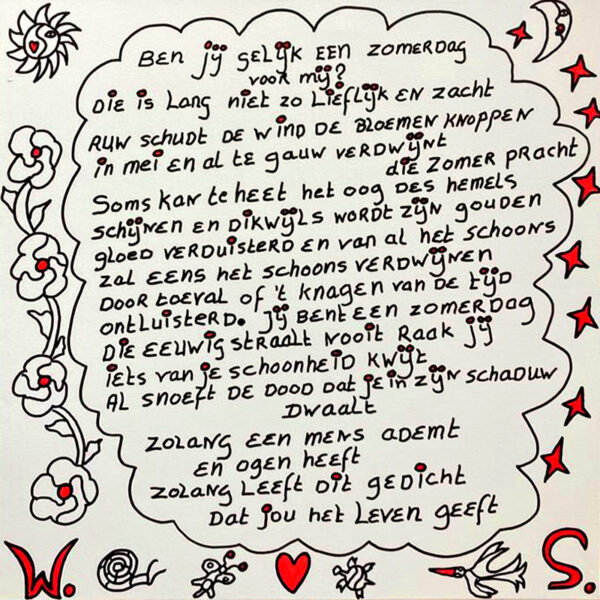 BEN jij gElijk EEN ZOMERDAG
voor mij?
Die is Lang niet zo Lieflijk EN ZACHT
RUW SCHUDT DE WIND DE BLOEMEN KNOPPEN
in mei EN al te gauw VERDWijNt
die Zomer pracht
Soms kan te heet het oog DES hemels
SCHijNEN EN DikWijls wordt Zijn gouden
gloed VERDuistERD EN van al het schoons
zal EENS het schoons VERDWijNEN
Door toEval of 't knagen van DE tijD
ontluistERD. Jij BENt EEN ZOMERDAG
Die EEuwig straalt Nooit Raak jij
iets van je schoonheid kwijt
AL SNOEft DE DOOD Dat je in Zijn SCHADUW
Dwaalt
ZOLANG EEN MENS ADEMT
EN OgEN HEEft
ZOLANG LEEft Dit gEDicht
Dat jou HEt LEVEN gEEft
W. S.